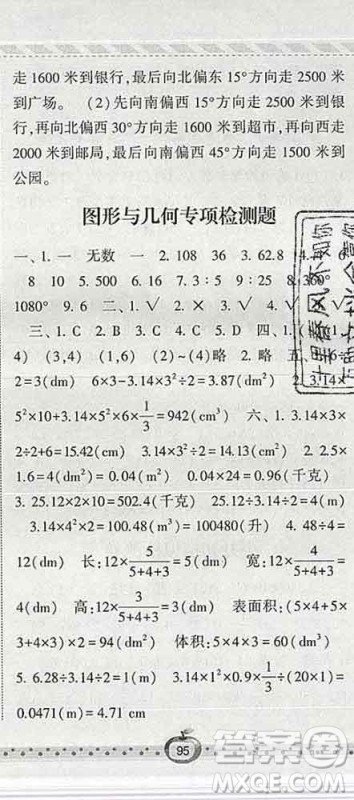 走 1600 米到银行，最后向北偏东 15°方向走 2500 米
到广场。 (2) 先向南偏西 15°方向走 2500 米到银
行，再向北偏西 30°方向走 1600 米到超市，再向西走
2000 米到邮局，最后向南偏西 45°方向走 1500 米到
公园。
图形与几何专项检测题
一、1. 一 无数 一 2. 108 36 3. 62.8 4.
8 10 5. 500 6. 16 7. 3∶5 9∶25 8.
1080° 9. 6 二、1. √ 2. × 3. × 4. √ 5. √
三、1. C 2. B 3. C 4. B 5. D 四、1.
4) (3,4) (1,6) (2)～(4)略 2. 略 五、
2=3(dm) 6×3-3.14×3²÷2=3.87(dm²) 2. 3.14×
5²×10+3.14×5²×6×1/3=942(cm³) 六、1. 3.14×3×
2÷2+6=15.42(cm) 3.14×3²÷2=14.13(cm²) 2. 2.5×
1.6=4(dm²)=0.04(m²) 0.04×24=0.96(千克)
3. 25.12×2×10=502.4(千克) 25.12÷3.14÷2=4(m)
3.14×4²×2=100.48(m³)=100480(升) 4. 48÷4=
12(dm) 长：12×5/(5+4+3)=5(dm) 宽：12×4/(5+4+3)=
4(dm) 高：12×3/(5+4+3)=3(dm) 表面积：(5×4+5×
3+4×3)×2=94(dm²) 体积：5×4×3=60(dm³)
5. 6.28÷3.14÷2=1(m) 3.14×1²×0.9×1/3÷(20×1)=
0.0471(m)=4.71 cm
95
答案圈
MXQE.COM